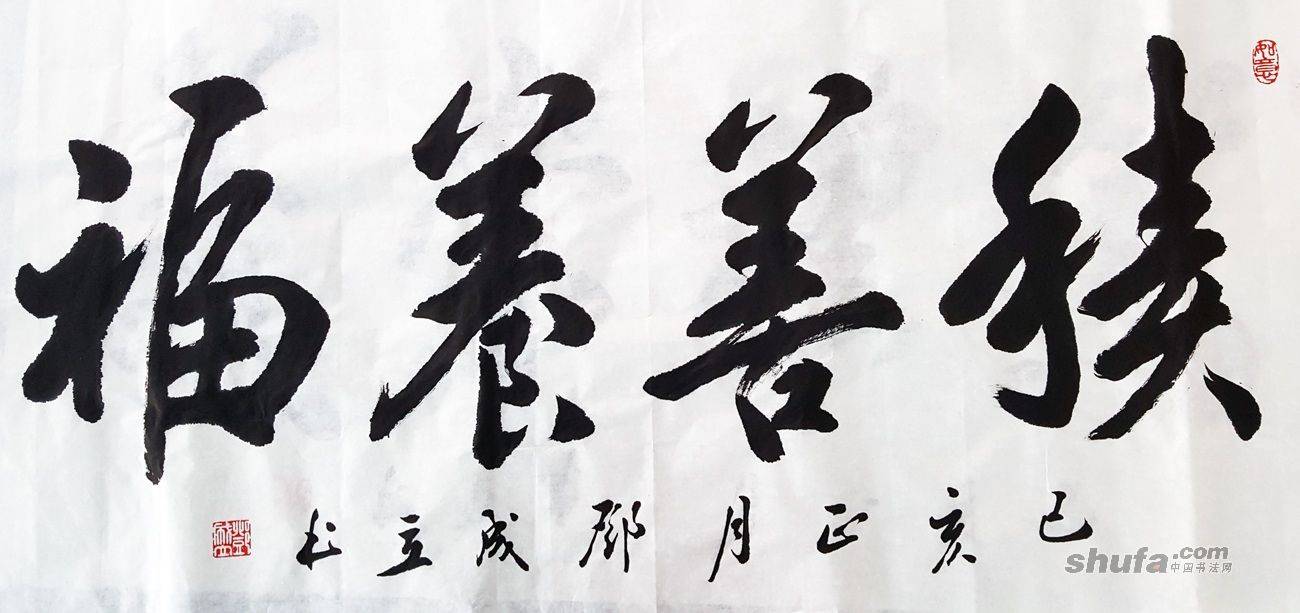 積善養福
己亥正月鄧成立书
如意
shufa.com
中国书法网